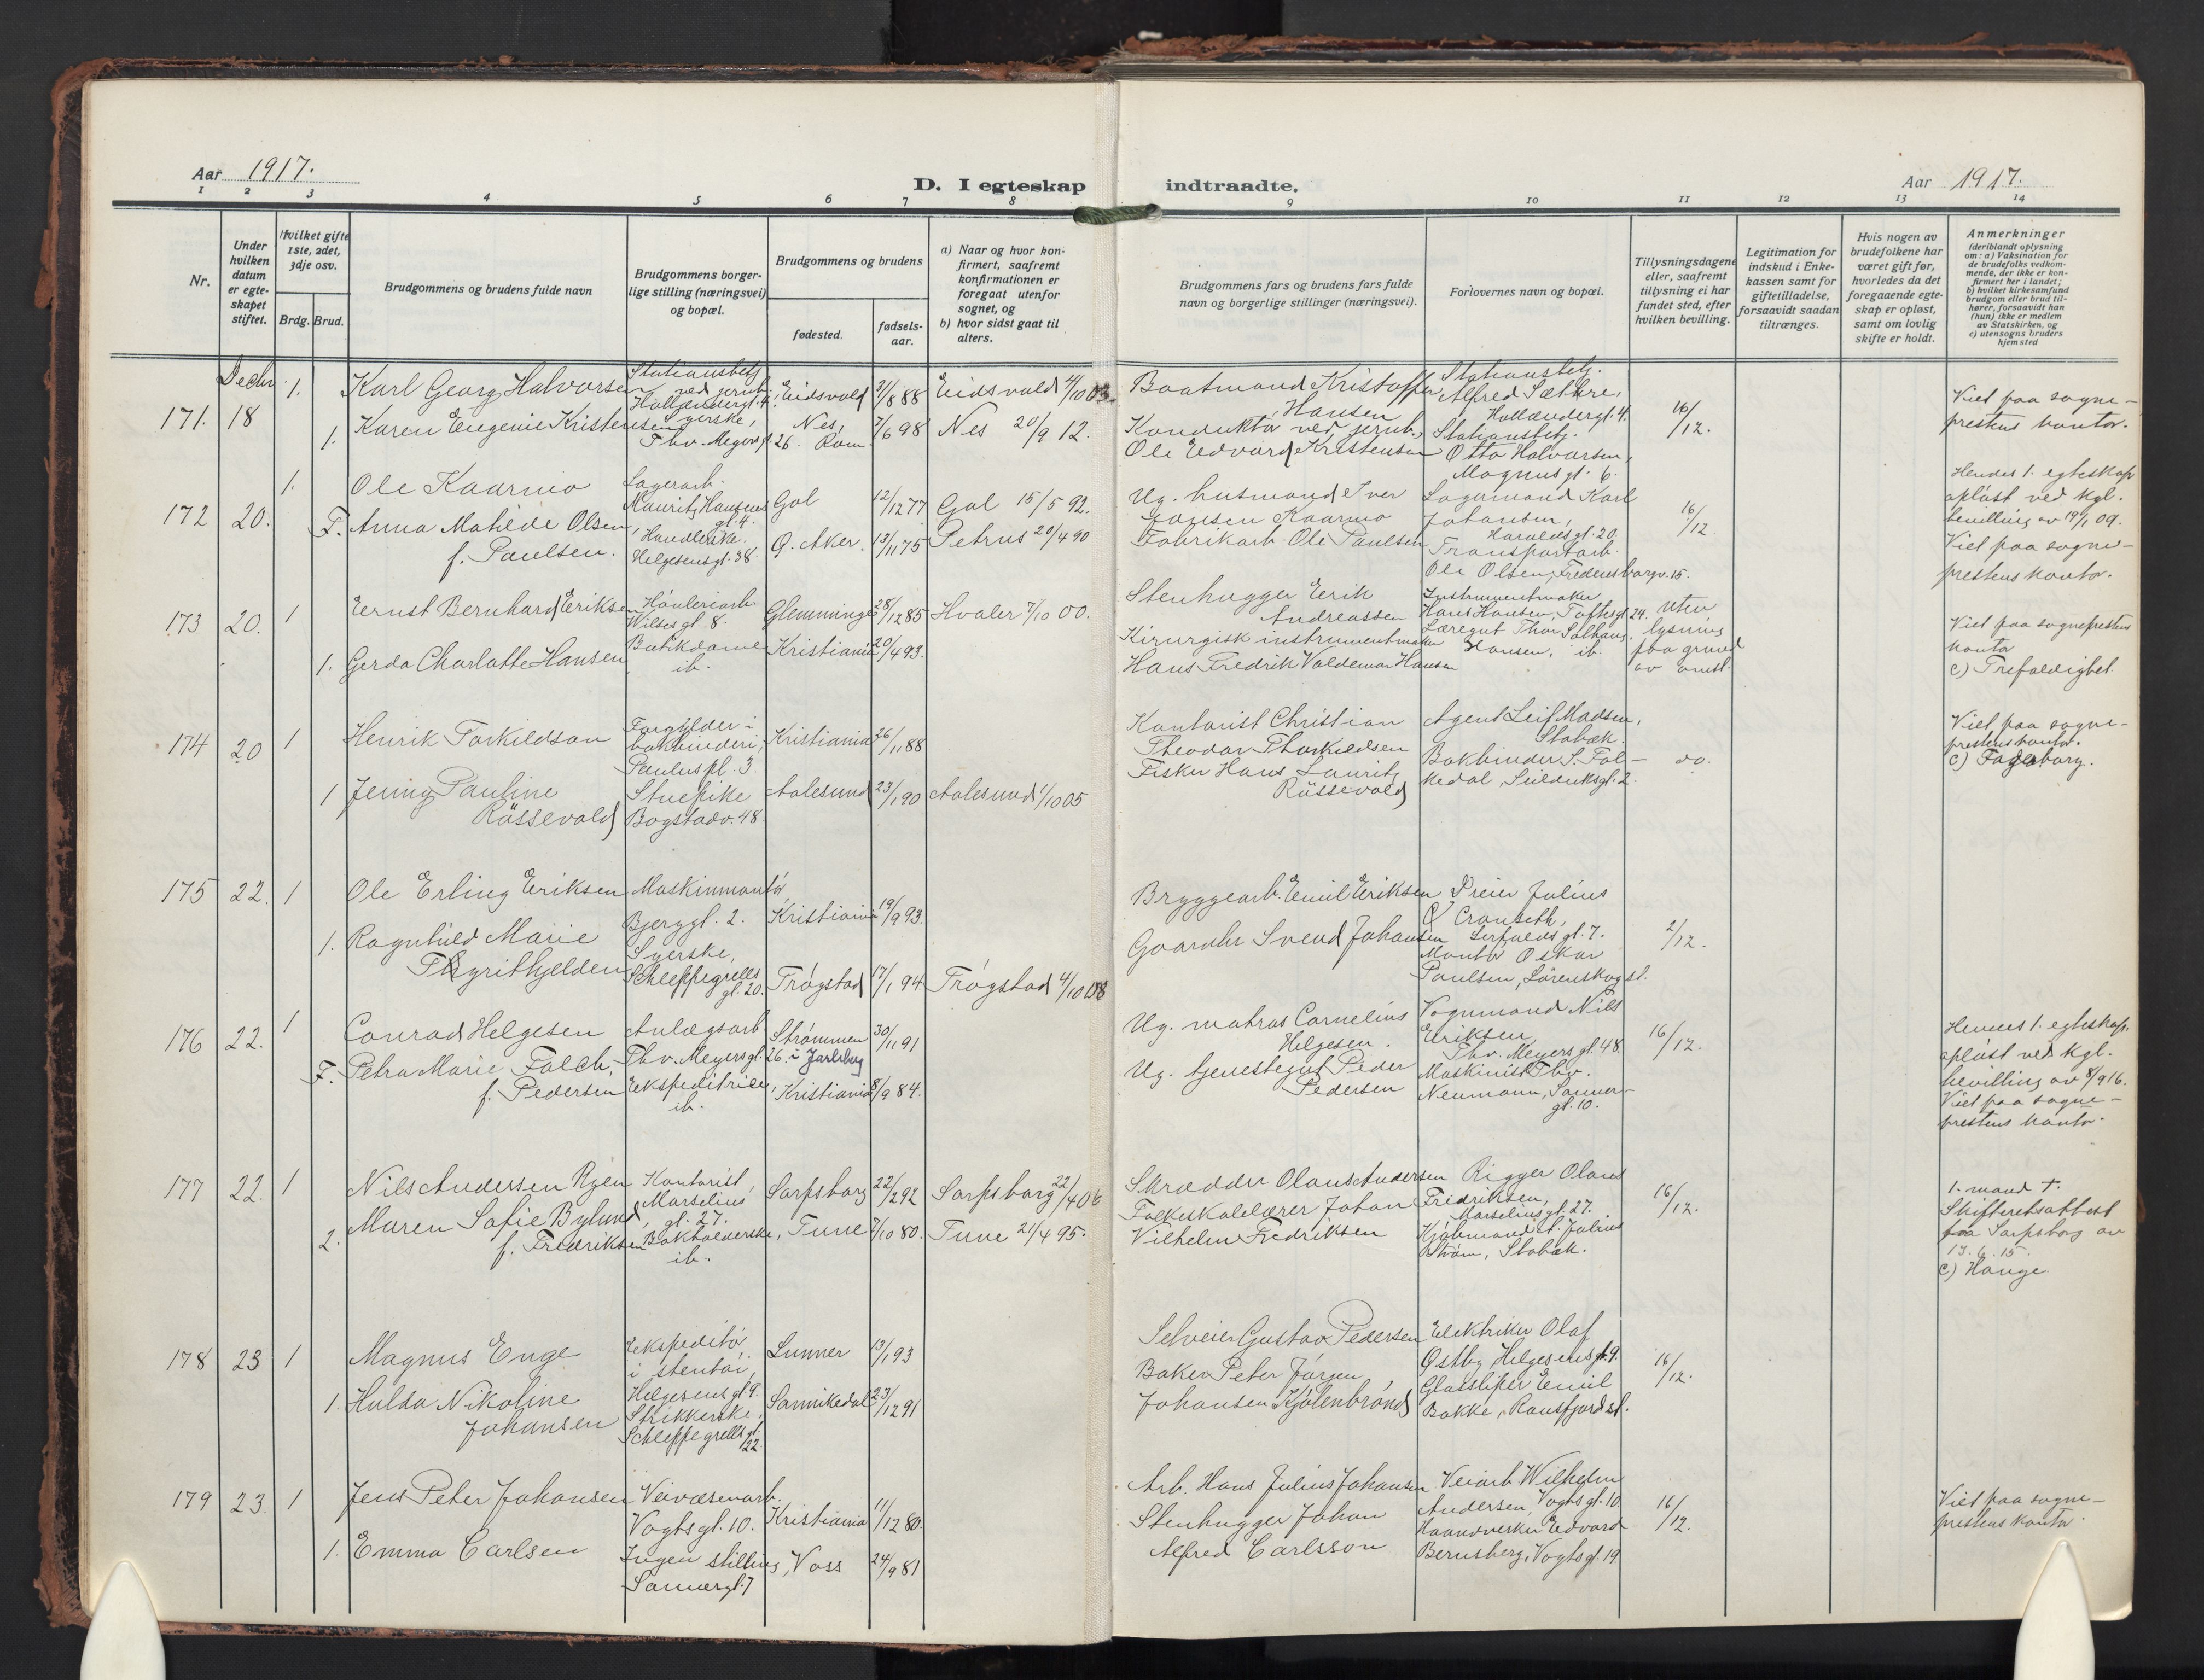 Aar 1917.
D. I egteskap indtraadte.
Aar 1917.
1 2 3 4 5 6 7 8 9 10 11 12 13 14
Nr.
Under hvilken datum er egteskapet stiftet.
Hvilket gifte 1ste, 2det, 3dje osv.
Brdg. Brud.
Brudgommens og brudens fulde navn
Brudgommens borgerlige stilling (næringsvei) og bopæl.
Brudgommens og brudens
fødested.
fødselsaar.
a) Naar og hvor konfirmert, saafremt konfirmationen er foregaat utenfor sognet, og
b) hvor sidst gaat til alters.
Brudgommens fars og brudens fars fulde navn og borgerlige stillinger (næringsvei).
Forlovernes navn og bopæl.
Tillysningsdagene eller, saafremt tillysning ei har fundet sted, efter hvilken bevilling.
Legitimation for indskud i Enkekassen samt for giftetilladelse, forsaavidt saadan tiltrænges.
Hvis nogen av brudefolkene har været gift før, hvorledes da det foregaaende egteskap er opløst, samt om lovlig skifte er holdt.
Anmerkninger
(deriblandt oplysning om: a) Vaksination for de brudefolks vedkommende, der ikke er konfirmert her i landet;
b) hvilket kirkesamfund brudgom eller brud tilhører, forsaavidt han (hun) ikke er medlem av Statskirken, og
c) utensogns bruders hjemsted
Decbr.
171. 18
1. Karl Georg Halvorsen
Stationsbetj. ved jernb. Hollændergt. 4.
Eidsvold 31/8 88 Eidsvold 4/10 03.
1. Karen Eugenie Kristensen
Syerske, Thv. Meyersgt. 26.
Nes, Rom. 7/6 98 Nes 20/9 12.
Baatmand Kristoffer Hansen
Konduktør ved jernb., Ole Edvard Kristensen
Stationsbetj. Alfred Sæthre, Hollændergt. 4.
Stationsbetj. Otto Halvorsen, Magnusgt. 6.
16/12.
Viet paa sogneprestens kontor.
172 20.
1. Ole Kaarmo
Lagerarb. Mauritz Hansens gt. 4.
Gol 12/12 77 Gol 15/5 92.
F. Anna Matilde Olsen, f. Paulsen.
Handlerske. Helgesensgt. 38.
Ø. Aker. 13/11 75 Petrus 20/4 90
Ug. husmand Iver Jonsen Kaarmo
Fabrikarb. Ole Paulsen
Lagermand Karl Johansen, Haraldsgt. 20.
Transportarb. Ole Olsen, Fredensborgv. 15.
16/12
Hendes 1. egteskap opløst ved kgl. bevilling av 19/1 09.
Viet paa sogneprestens kontor.
173 20.
1 Ernst Bernhard Eriksen
Høvleriarb. Wilsesgt. 8.
Glemminge 28/12 85 Hvaler 7/10 00.
1. Gerda Charlotte Hansen
Butikdame ib.
Kristiania 20/4 93.
Stenhugger Erik Andreassen
Kirurgisk instrumentmaker Hans Fredrik Valdemar Hansen
Instrumentmaker Hans Hansen, Toftesgt. 24.
Læregut Thor Solhaug Hansen, ib.
Uten lysning paa grund av omst.
Viet paa sogneprestens kontor
c) Trefoldighet.
174 20
1 Henrik Torkildson
Forgylder i bokbinderi, Pauluspl. 3.
Kristiania 26/11 88
1 Jenny Pauline Røssevold
Stuepike Bogstadv. 48.
Aalesund 23/1 90 Aalesund 1/10 05
Kontorist Christian Theodor Thorkildsen
Fisker Hans Lauritz Røssevold
Agent Leif Madsen, Stabæk.
Bokbinder S. Folkedal, Seilduksgt. 2.
do.
Viet paa sogneprestens kontor.
c) Fagerborg.
175 22.
1 Ole Erling Eriksen
Maskinmontør, Bjerggt. 2.
Kristiania 19/9 93.
1. Ragnhild Marie Thyrithjelden
Syerske, Schleppegrells gt. 20.
Trøgstad 17/1 94 Trøgstad 4/10 08
Bryggearb. Emil Eriksen
Gaardbr. Svend Johansen
Dreier Julius Cranseth, Lerfaldsgt. 7.
Montør Oskar Paulsen, Lørenskog st.
2/12.
176 22.
1 Conrad Helgesen
Anlægsarb. Thv. Meyersgt. 26.
Strømmen i Jarlsberg 30/11 91
F. Petra Marie Falch, f. Pedersen
Ekspeditrice, ib.
Kristiania 8/9 84.
Ug. matros Cornelius Helgesen.
Ug. tjenestegut Peder Pedersen
Vognmand Nils Eriksen, Thv. Meyersgt. 48.
Maskinist Thv. Neumann, Sannergt. 10.
16/12.
Hendes 1. egteskap opløst ved kgl. bevilling av 8/9 16.
Viet paa sogneprestens kontor.
177 22.
1 Nils Andersen Ryen
Kontorist, Marselius gt. 27.
Sarpsborg 22/2 92 Sarpsborg 22/4 06
2. Maren Sofie Bylund, f. Fredriksen
Bokholderske, ib.
Tune 7/10 80. Tune 21/4 95.
Skrædder Olaus Andersen
Folkeskolelærer Johan Vilhelm Fredriksen
Rigger Olaus Fredriksen, Marseliusgt. 27.
Kjøbmand Julius Strøm, Stabæk.
16/12.
1. mand †. Skifteretsattest fra Sarpsborg av 13.6.15.
c) Hauge.
178 23
1 Magnus Enge
Ekspeditør i stentøi, Helgesensgt. 9.
Lunner 13/1 93
1. Hulda Nikoline Johansen
Strikkerske, Schleppegrellsgt. 22.
Sannikedal 23/12 91
Selveier Gustav Pedersen
Baker Peter Jørgen Johansen Kjølenbrønd
Elektriker Olaf Østby, Helgesensgt. 9.
Glassliper Emil Bakke, Ransfjord st.
16/12.
179 23
1 Jens Peter Johansen
Veivæsenarb. Vogtsgt. 10.
Kristiania 11/12 80.
1. Emma Carlsen
Ingen stilling, Sannergt. 7
Voss 24/9 81
Arb. Hans Julius Johansen
Stenhugger Johan Alfred Carlsson
Veiarb. Wilhelm Andersen, Vogtsgt. 10.
Haandverker Edvard Bernsberg, Vogtsgt. 19.
16/12.
Viet paa sogneprestens kontor